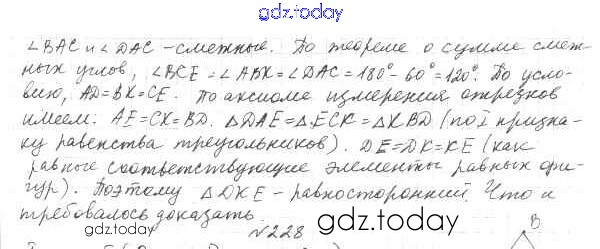 gdz.today
∠BAC и ∠DAC - смежные. По теореме о сумме смеж-
ных углов, ∠BCE = ∠ABK = ∠DAC = 180° - 60° = 120°. По усло-
вию, AD = BK = CE. По аксиоме измерения отрезков
имеем: AE = CK = BD. △DAE = △ECK = △KBD (по I призна-
ку равенства треугольников). DE = DK = KE (как
равные соответствующие элементы равных фи-
гур). Поэтому △DKE - равносторонний. Что и
требовалось доказать.
№228
B
gdz.today
gdz.today